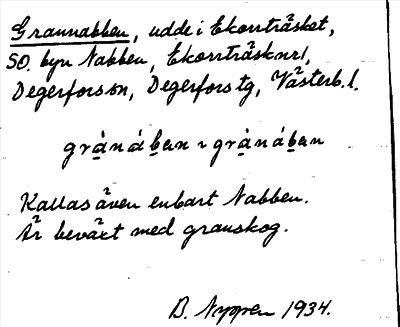 Grannabben, udde i Ekorrträsket,
SO. byn Nabben, Ekorrträsk nr 1,
Degerfors sn, Degerfors tg, Västerb. l.
grànában ~ grànában
Kallas även enbart Nabben.
Är beväxt med granskog.
B. Nyppen 1934.